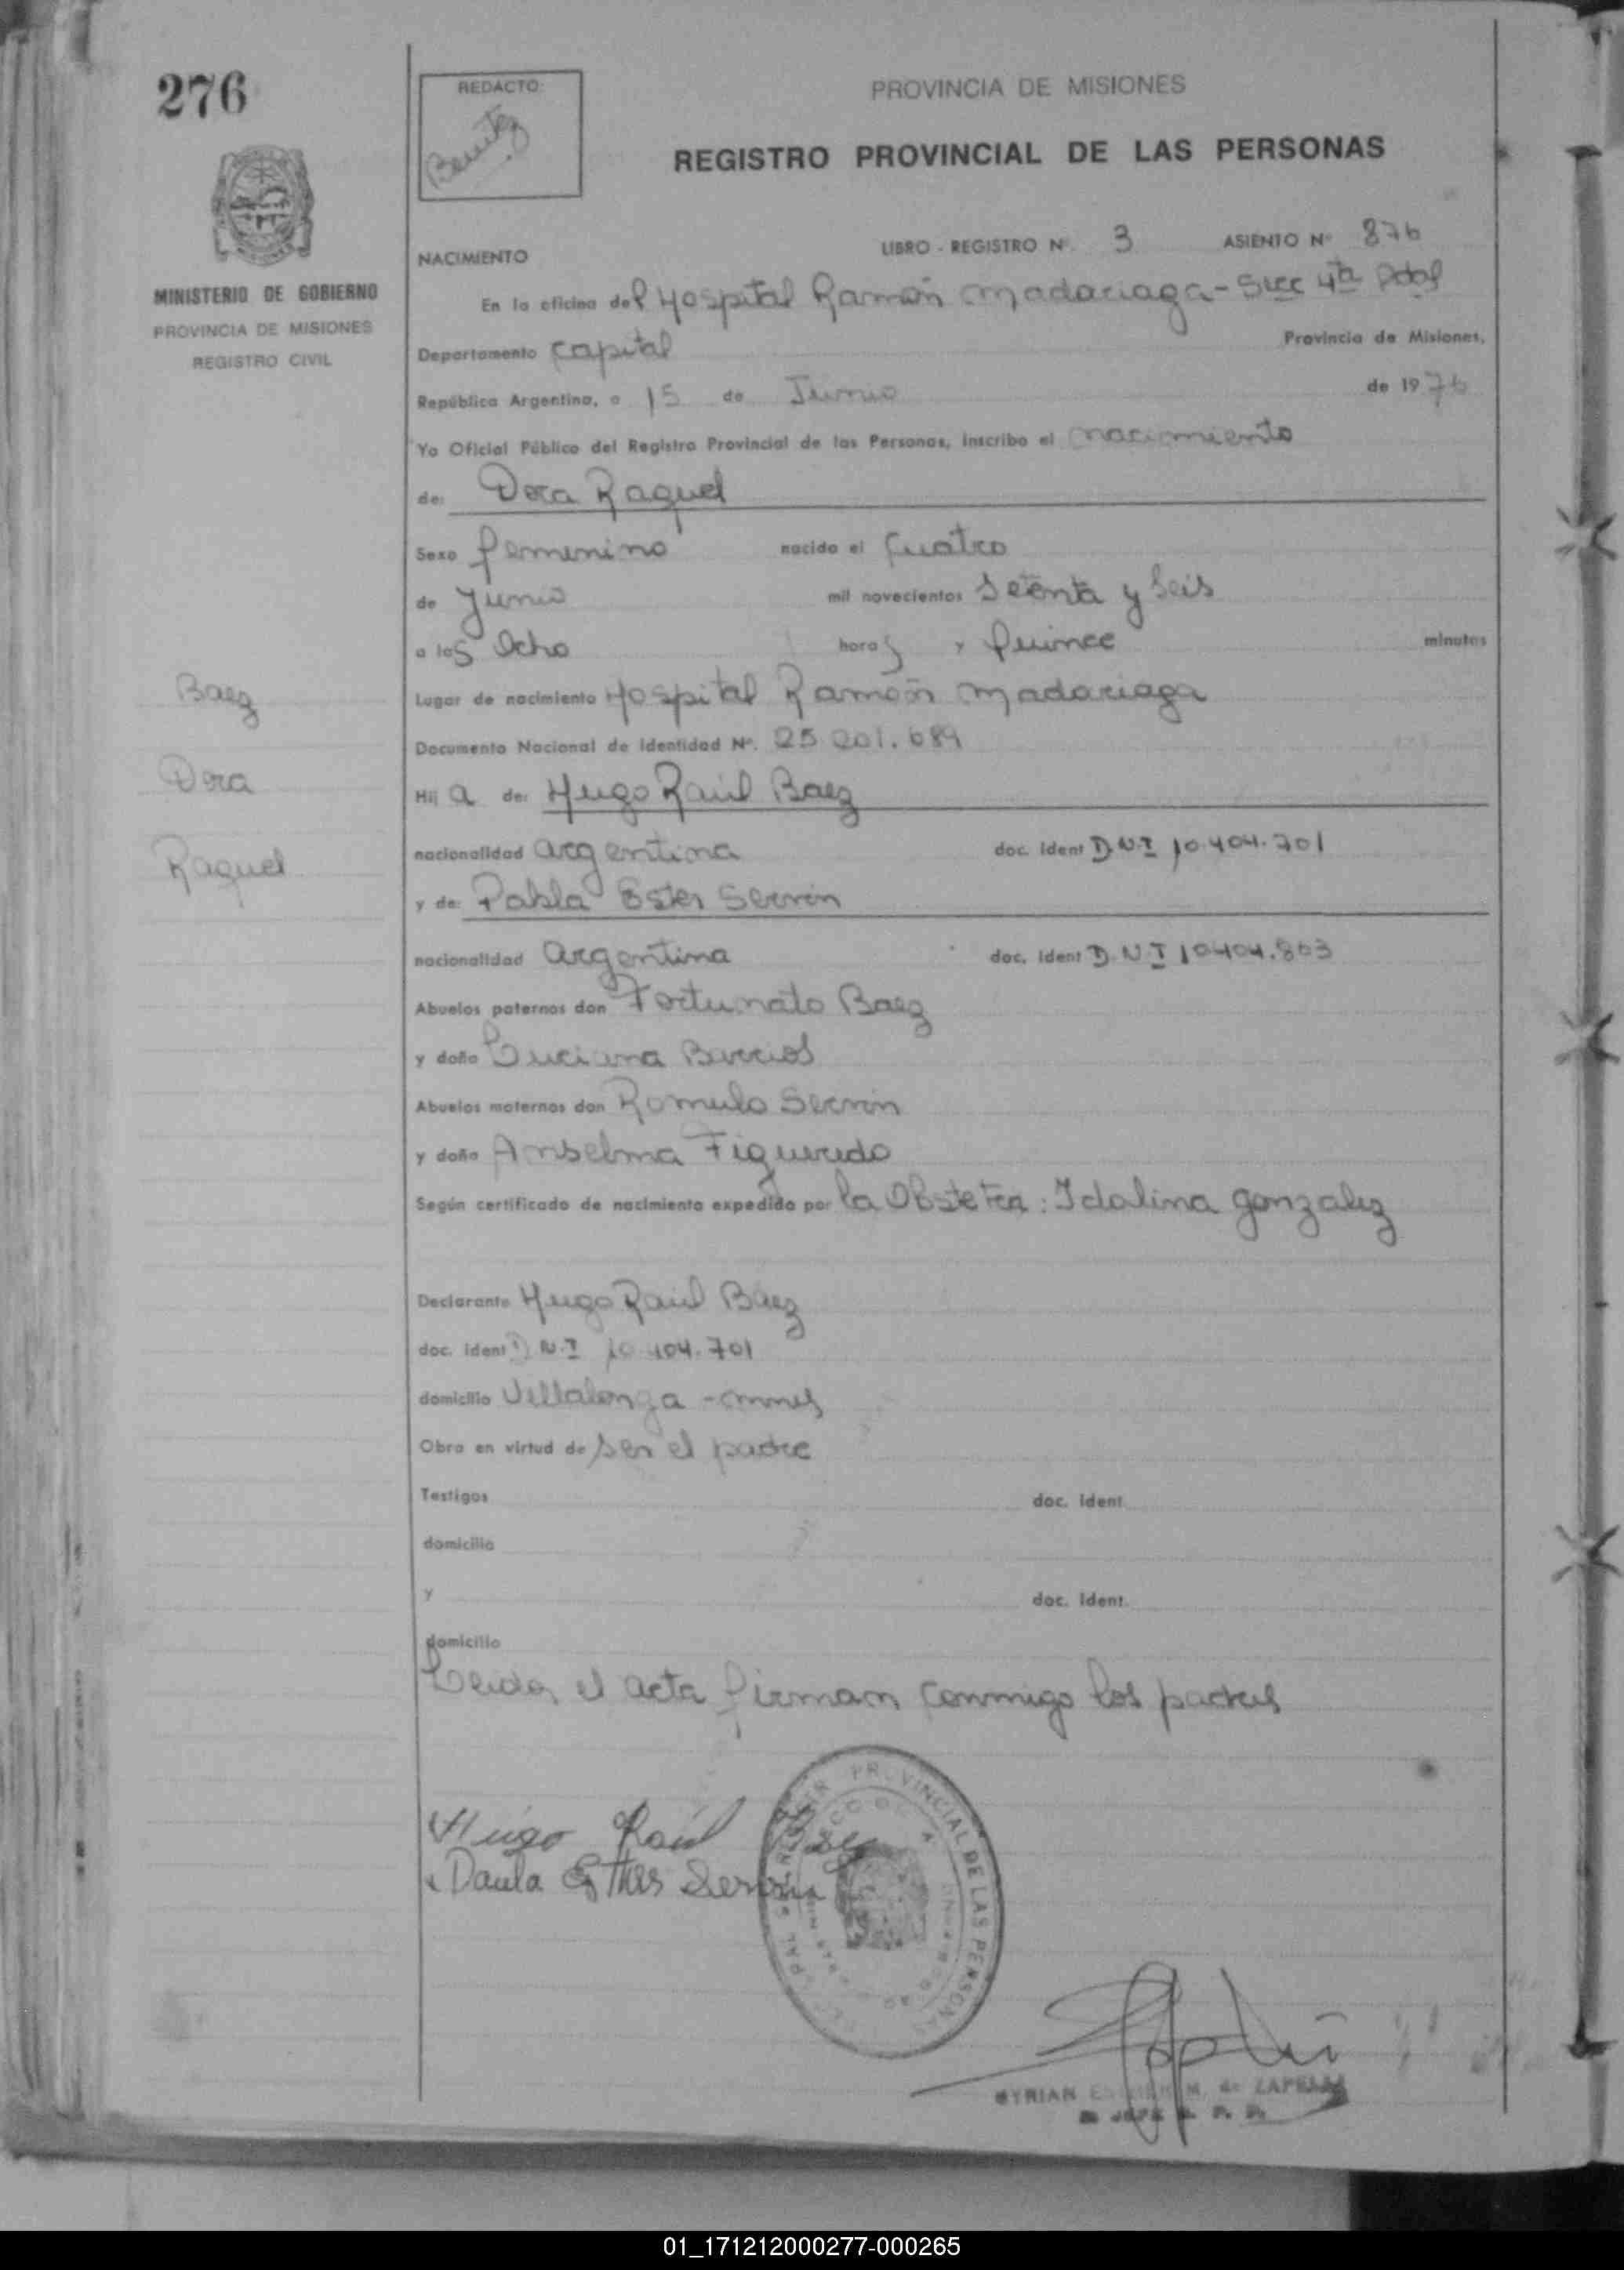 276
REDACTO:
Benitez
PROVINCIA DE MISIONES
REGISTRO PROVINCIAL DE LAS PERSONAS
MINISTERIO DE GOBIERNO
PROVINCIA DE MISIONES
REGISTRO CIVIL
NACIMIENTO
LIBRO - REGISTRO Nº. 3 ASIENTO Nº 876
En la oficina del Hospital Ramón Madariaga - Secc 4ta Pdas
Departamento Capital Provincia de Misiones,
República Argentina, a 15 de Junio de 1976
Yo Oficial Público del Registro Provincial de las Personas, inscribo el nacimiento
de: Dora Raquel
Sexo femenino nacido el Cuatro
de Junio mil novecientos Setenta y Seis
a las Ocho horas y Quince minutos
Lugar de nacimiento Hospital Ramón Madariaga
Documento Nacional de Identidad Nº. 25.201.689
Baez
Dora
Raquel
Hij a de: Hugo Raúl Baez
nacionalidad argentina doc. Ident D.N.I 10.404.701
y de: Pabla Ester Servin
nacionalidad argentina doc. Ident D.N.I 10404.803
Abuelos paternos don Fortunato Baez
y doña Luciana Barrios
Abuelos maternos don Romulo Servin
y doña Anselma Figueredo
Según certificado de nacimiento expedido por la Obstetra: Idalina Gonzalez
Declarante Hugo Raúl Baez
doc. ident D.N.I 10.404.701
domicilio Villalonga - mnes
Obra en virtud de ser el padre
Testigos doc. Ident.
domicilio
y doc. Ident.
domicilio
Leida, el acta firman conmigo los padres
Hugo Raúl Baez
Paula Esther Servin
PROVINCIAL DE LAS PERSONAS
MYRIAN M. de ZAPELLI
01_171212000277-000265